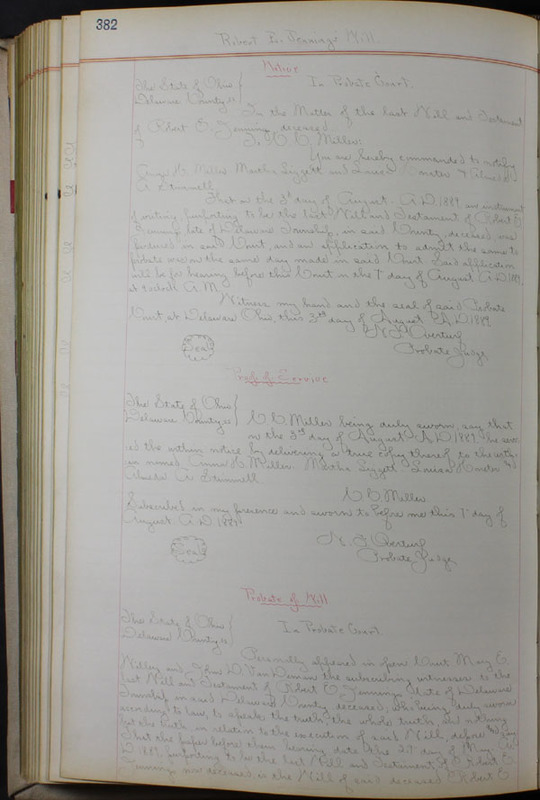 382
Robert E. Jennings Will.
Notice
The State of Ohio
Delaware County, ss
In Probate Court.
In the Matter of the last Will and Testament
of Robert E. Jennings deceased
To W. C. Miller:
You are hereby commanded to notify
Anna H. Miller Martha Liggett and Louisa &
A.
That on the 3d day of August A.D. 1889 an instrument
of writing, purporting to be the last Will and Testament of Robert E.
Jennings late of Delaware Township, in said County, deceased, was
produced in said Court, and an application to admit the same to
probate was on the same day made in said Court. Said application
will be for hearing before this Court on the 7 day of August A.D. 1889,
at o'clock A.M.
Witness my hand and the seal of said Probate
Court, at Delaware Ohio, this 3rd day of August A.D. 1889.
Seal
Overturf
Probate Judge.
Proof of Service
The State of Ohio
Delaware County, ss
C. Miller being duly sworn, say that
on the 3rd day of August A.D. 1889, he serv-
ed the within notice by delivering a true copy thereof to the with-
in named, Anna H. Miller. Martha Liggett Louisa and
A.
C. Miller
Subscribed in my presence and sworn to before me this 7 day of
August A.D. 1889.
Seal
Overturf
Probate Judge
Probate of Will
The State of Ohio
Delaware County, ss
In Probate Court.
Personally appeared in open Court, Mary E.
and John D. Van Deman the subscribing witnesses to the
last Will and Testament of Robert E. Jennings late of Delaware
Township in said Delaware County deceased, who being duly sworn
according to law, to speak the truth, the whole truth and nothing
but the truth, in relation to the execution of said Will, depose and say
That the paper before them bearing date the 27 day of May A.
D. 1887, purporting to be the last Will and Testament of Robert E.
Jennings now deceased, is the Will of said deceased Robert E.